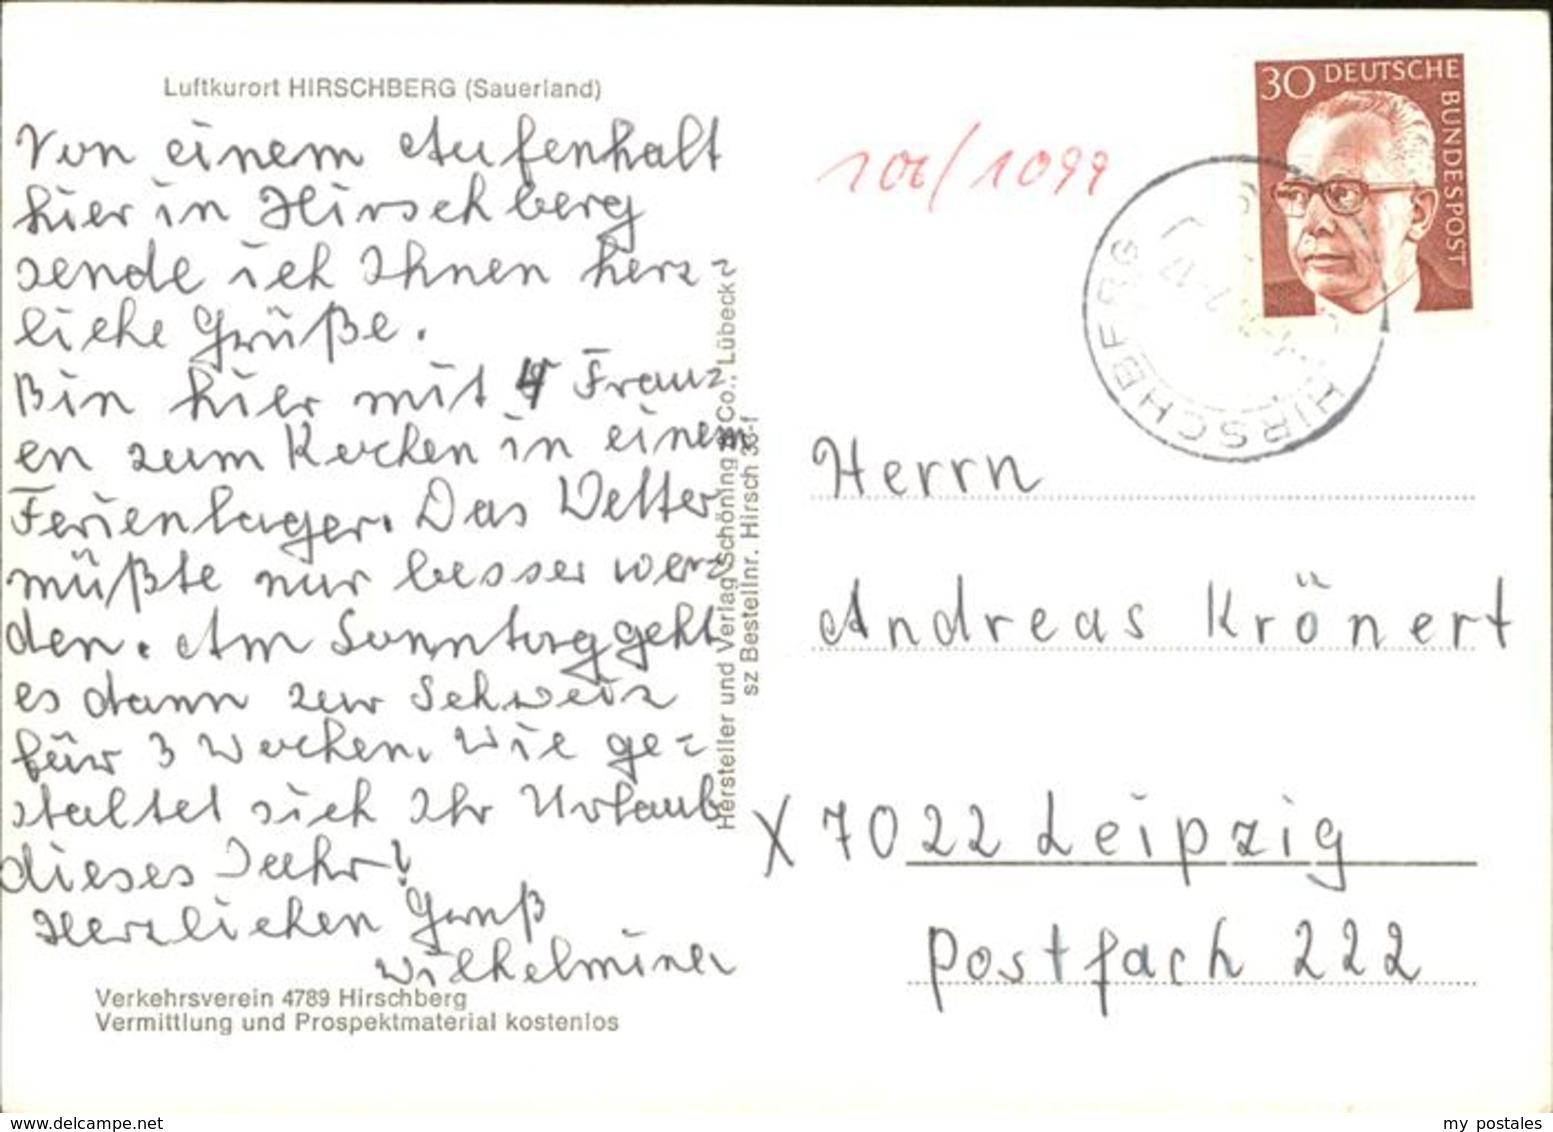 Luftkurort HIRSCHBERG (Sauerland)
Von einem Aufenhalt
hier in Hirschberg
sende ich Ihnen herz=
liche Grüße.
Bin hier mit 4 Frau=
en zum Kochen in einem
Ferienlager. Das Wetter
müßte nur besser wer=
den. Am Sonntag geht
es dann zur Schweiz
für 3 Wochen. Wie ge=
staltet sich Ihr Urlaub
dieses Jahr?
Herzlichen Gruß
Wilhelmine
Verkehrsverein 4789 Hirschberg
Vermittlung und Prospektmaterial kostenlos
Hersteller und Verlag Schöning & Co., Lübeck
sz Bestellnr. Hirsch 33-f
30 DEUTSCHE
BUNDESPOST
HIRSCHBERG
Herrn
Andreas Krönert
X 7022 Leipzig
Postfach 222
my postales